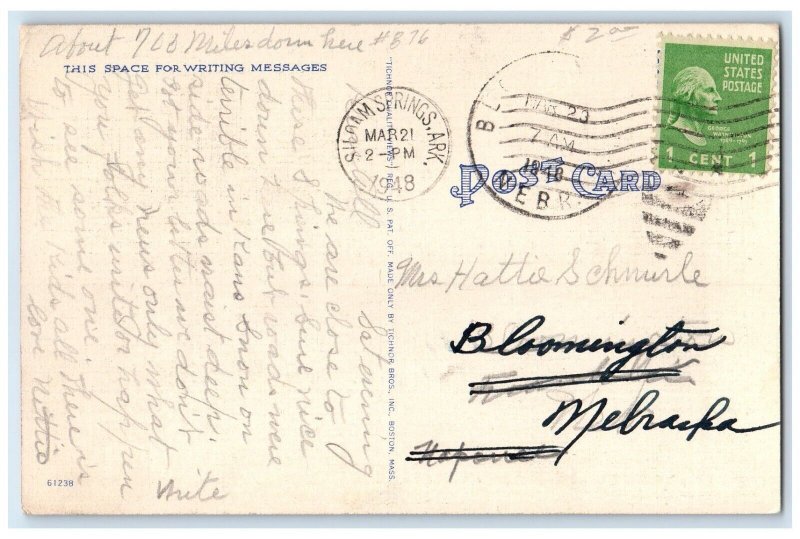 About 768 Miles down here #876
$2.00
THIS SPACE FOR WRITING MESSAGES
Sat evening
Dear All
We are close to
these Springs. Sure nice
down here But roads were
terrible in Kans Snow on
side roads waist deep.
got your letter we don't
get any News only what
you folks write
to see some one.
wish the kids all there is
love Nettie
write
61238
"TICHNOR QUALITY VIEWS," REG. U. S. PAT. OFF. MADE ONLY BY TICHNOR BROS., INC., BOSTON, MASS.
SILOAM SPRINGS, ARK.
MAR 21
2-PM
1948
MAR 23
7 AM
1948
NEBR.
UNITED
STATES
POSTAGE
GEORGE
WASHINGTON
1 CENT 1
POST CARD
Mrs Hattie Schmurle
Bloomington
Nebraska